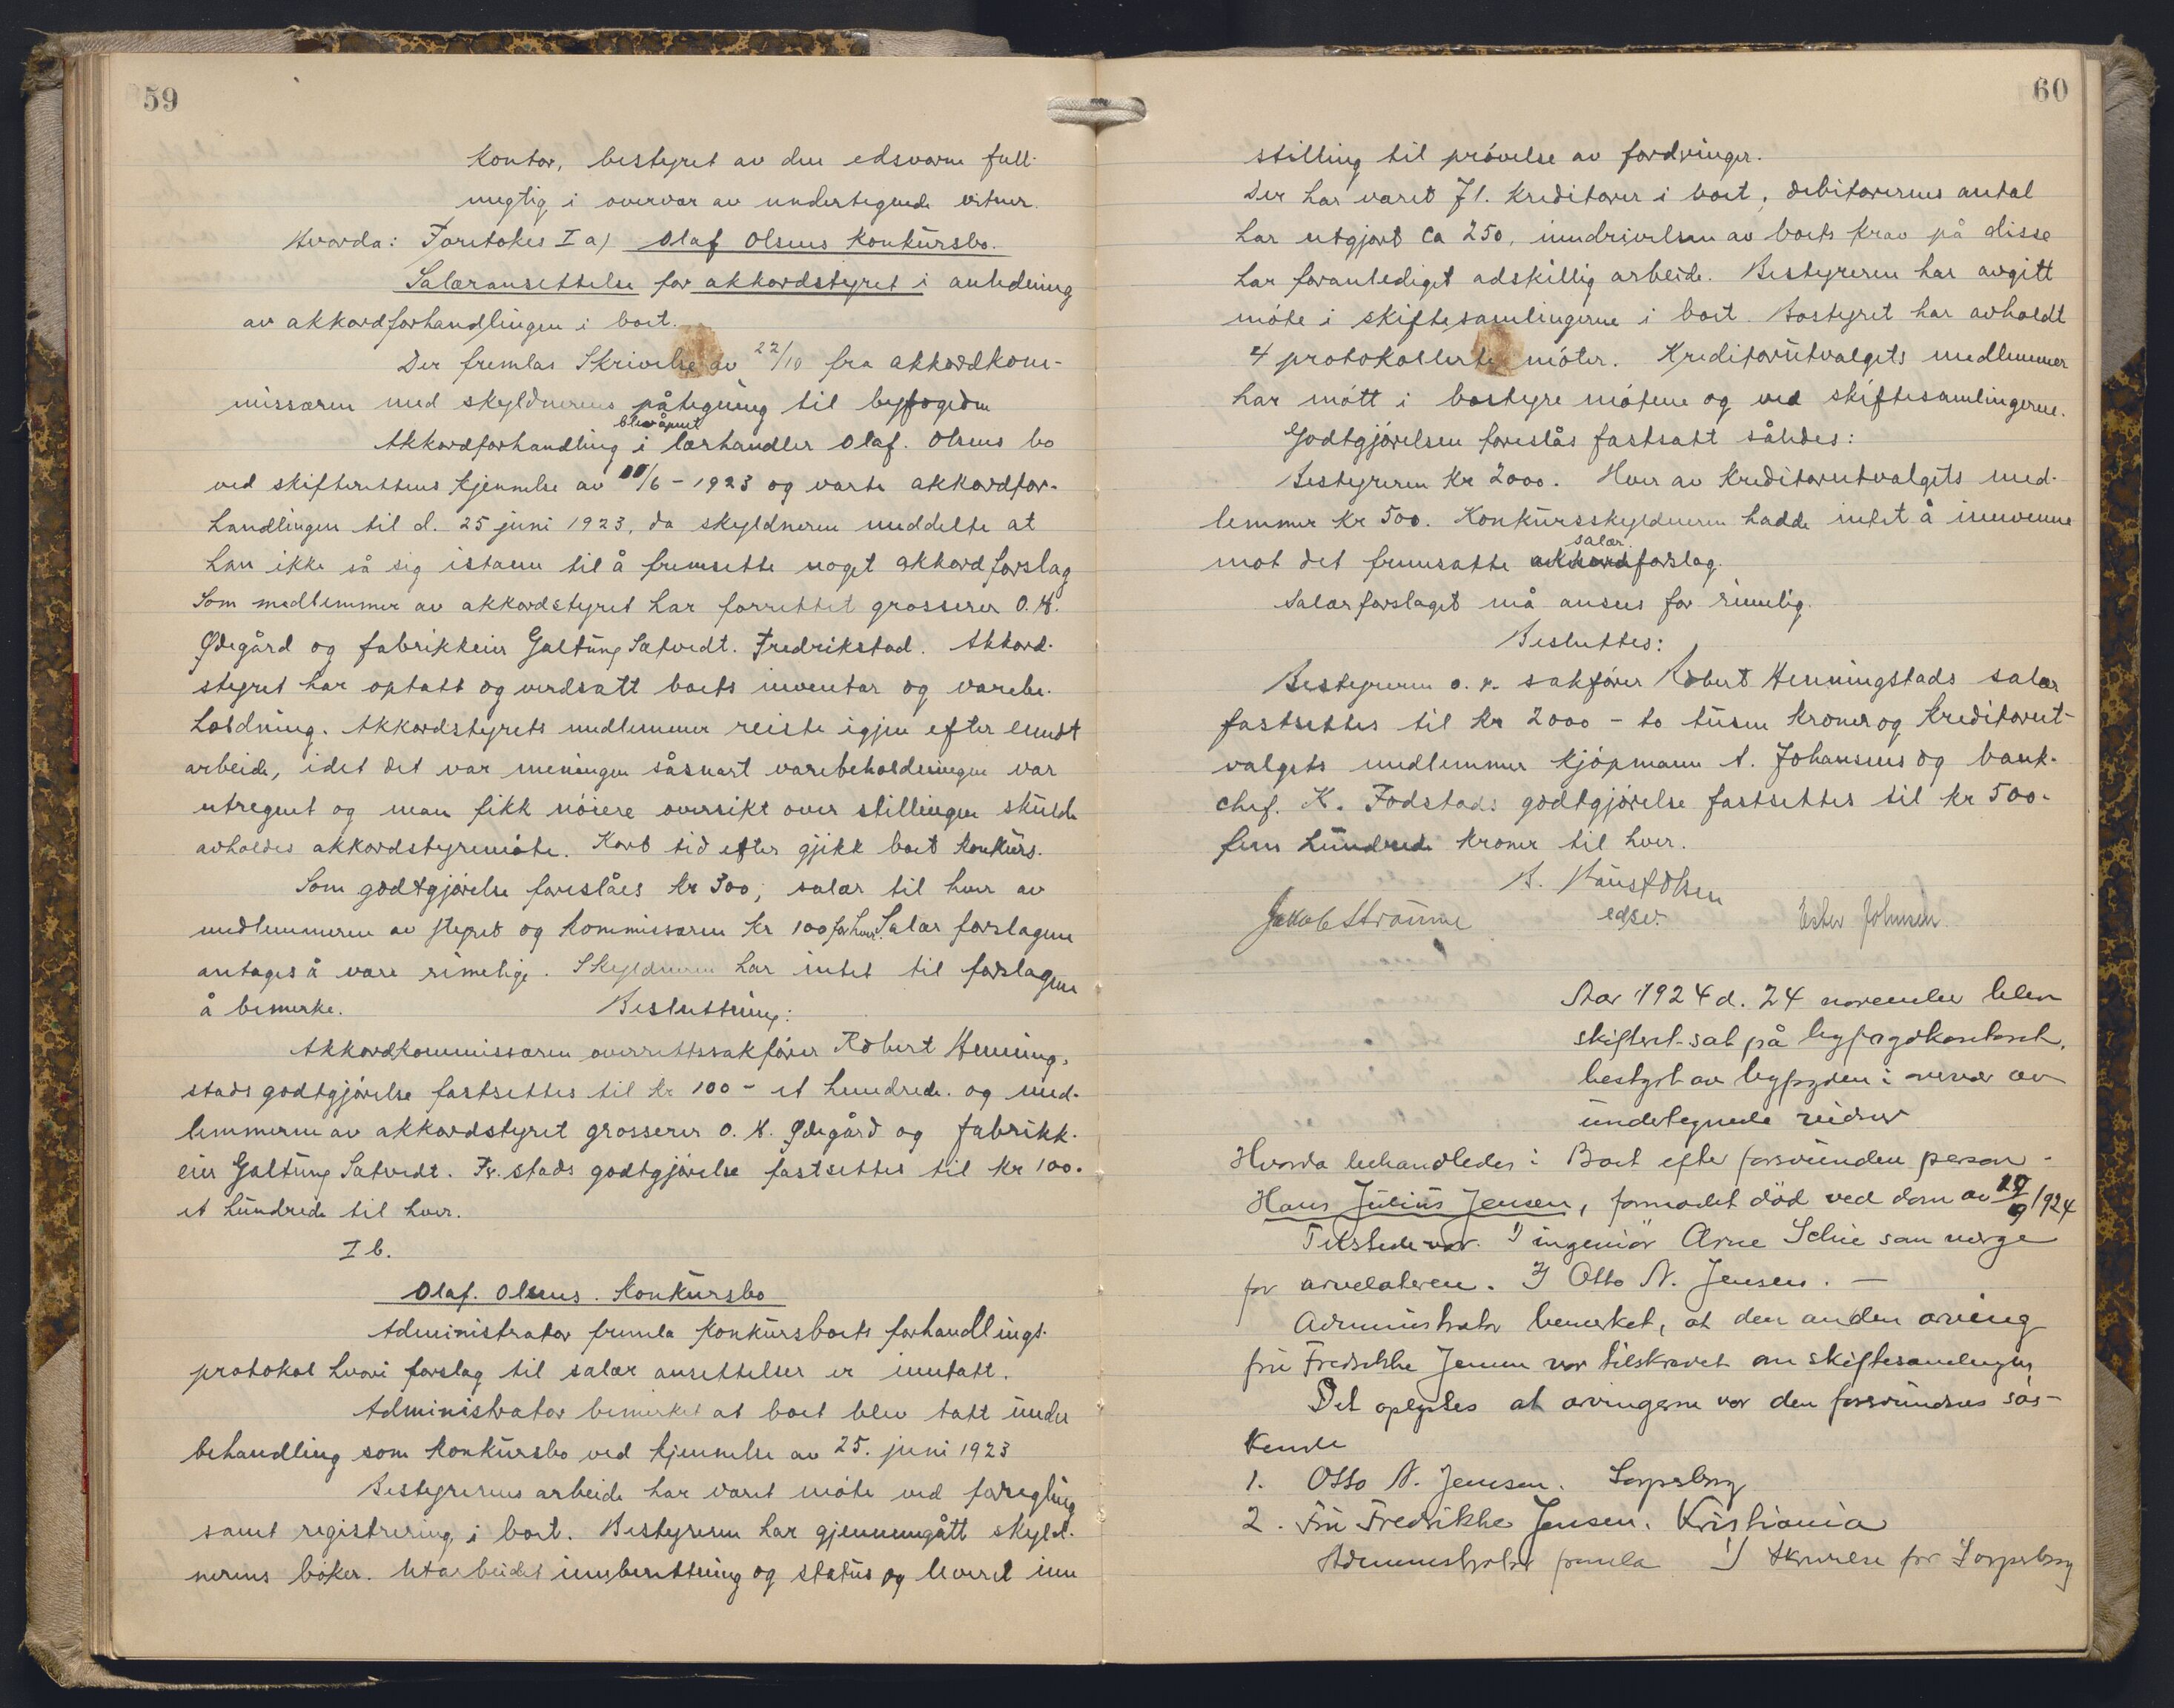 59
kontor, bestyret av den edsvorne full-
megtig i overvær av undertegnede vitner.
Hvorda: Foretokes I a) Olaf Olsens konkursbo.
Salæransettelse for akkordstyret i anledning
av akkordforhandlingen i boet.
Der fremlas Skrivelse av 22/10 fra akkordkom-
missæren med skyldnerens påtegning til byfogden
blev åpnet
Akkordforhandling i lærhandler Olaf. Olsens bo
ved skifterettens kjennelse av /6 - 1923 og varte akkordfor-
handlingen til d. 25 juni 1923, da skyldneren meddelte at
han ikke så sig istann til å fremsette noget akkordforslag
Som medlemmer av akkordstyret har forrettet grosserer O. H.
Ødegård og fabrikkeier Galtung Sætvedt. Fredrikstad. Akkord-
styret har optatt og verdsatt boets inventar og varebe-
holdning. Akkordstyrets medlemmer reiste igjen efter endt
arbeide, idet det var meningen såsnart varebeholdningen var
utregnet og man fikk nöiere oversikt over stillingen skulde
avholdes akkordstyremöte. Kort tid efter gjikk boet konkurs.
Som godtgjörelse foreslåes kr 300; salær til hver av
medlemmerne av styret og kommissæren kr 100 for hver. Salær forslagene
antages å være rimelige. Skyldneren har intet til forslagene
å bemerke. Beslutning:
Akkordkommissæren overrettssakförer Robert Henning-
stads godtgjörelse fastsettes til kr 100 - et hundrede. og med-
lemmerne av akkordstyret grosserer O. H. Ødegård og fabrikk-
eier Galtung Sætvedt. Fr. stads godtgjörelse fastsettes til kr 100.
et hundrede til hver.
I b.
Olaf. Olsens. Konkursbo
Administrator fremla konkursboets forhandlings-
protokol hvori forslag til salær ansettelser er inntatt.
Administrator bemerket at boet blev tatt under
behandling som konkursbo ved kjennelse av 25. juni 1923
Bestyrerens arbeide har været möte ved forsegling
samt registrering i boet. Bestyreren har gjennemgått skyld-
nerens böker. Utarbeidet innberettning og status og levert inn
60
stilling til prövelse av fordringer.
Der har været 71. kreditorer i boet, debitorernes antal
har utgjort ca 250, inndrivelsen av boets krav på disse
har foranlediget adskillig arbeide. Bestyreren har avgitt
möte i skiftesamlingerne i boet. Bostyret har avholdt
4 protokollerte möter. Kreditorutvalgets medlemmer
har mött i bostyre mötene og ved skiftesamlingerne.
Godtgjörelsen foreslås fastsatt således:
Bestyreren kr 2000. Hver av kreditorutvalgets med-
lemmer kr 500. Konkursskyldneren hadde intet å innvenne
salær
mot det fremsatte akkordforslag.
Salærforslaget må ansees for rimelig.
Besluttes:
Bestyreren o. r. sakförer Robert Henningstads salær
fastsettes til kr 2000 - to tusen kroner og kreditorut-
valgets medlemmer kjöpmann A. Johansens og bank-
chef. K. Fodstads godtgjörelse fastsettes til kr 500-
fem hundrede kroner til hver.
edsv.
Jakob Strömme Ester Johnsen.
Aar 1924 d. 24 november blev
skifteret sat på byfogdkontoret,
bestyrt av byfogden i overvær av
undetegnede vidner
Hvorda behandledes: Boet efter forsvunden person -
Hans Julius Jensen, formodet död ved dom av /9 1924
Tilstede var. 1) ingeniör Arne Schie som verge
for arvelateren. 2) Otto N. Jensen. -
Administrator bemerket, at den anden arving
fru Fredrikke Jensen var tilskrevet om skiftesamlingen
Det oplystes at arvingerne var den forsvundnes sös-
kende
1. Otto N. Jensen. Sarpsborg
2. Fru Fredrikke Jensen. Kristiania
Administrator fremla 1) Skrivelse fra Sarpsborg